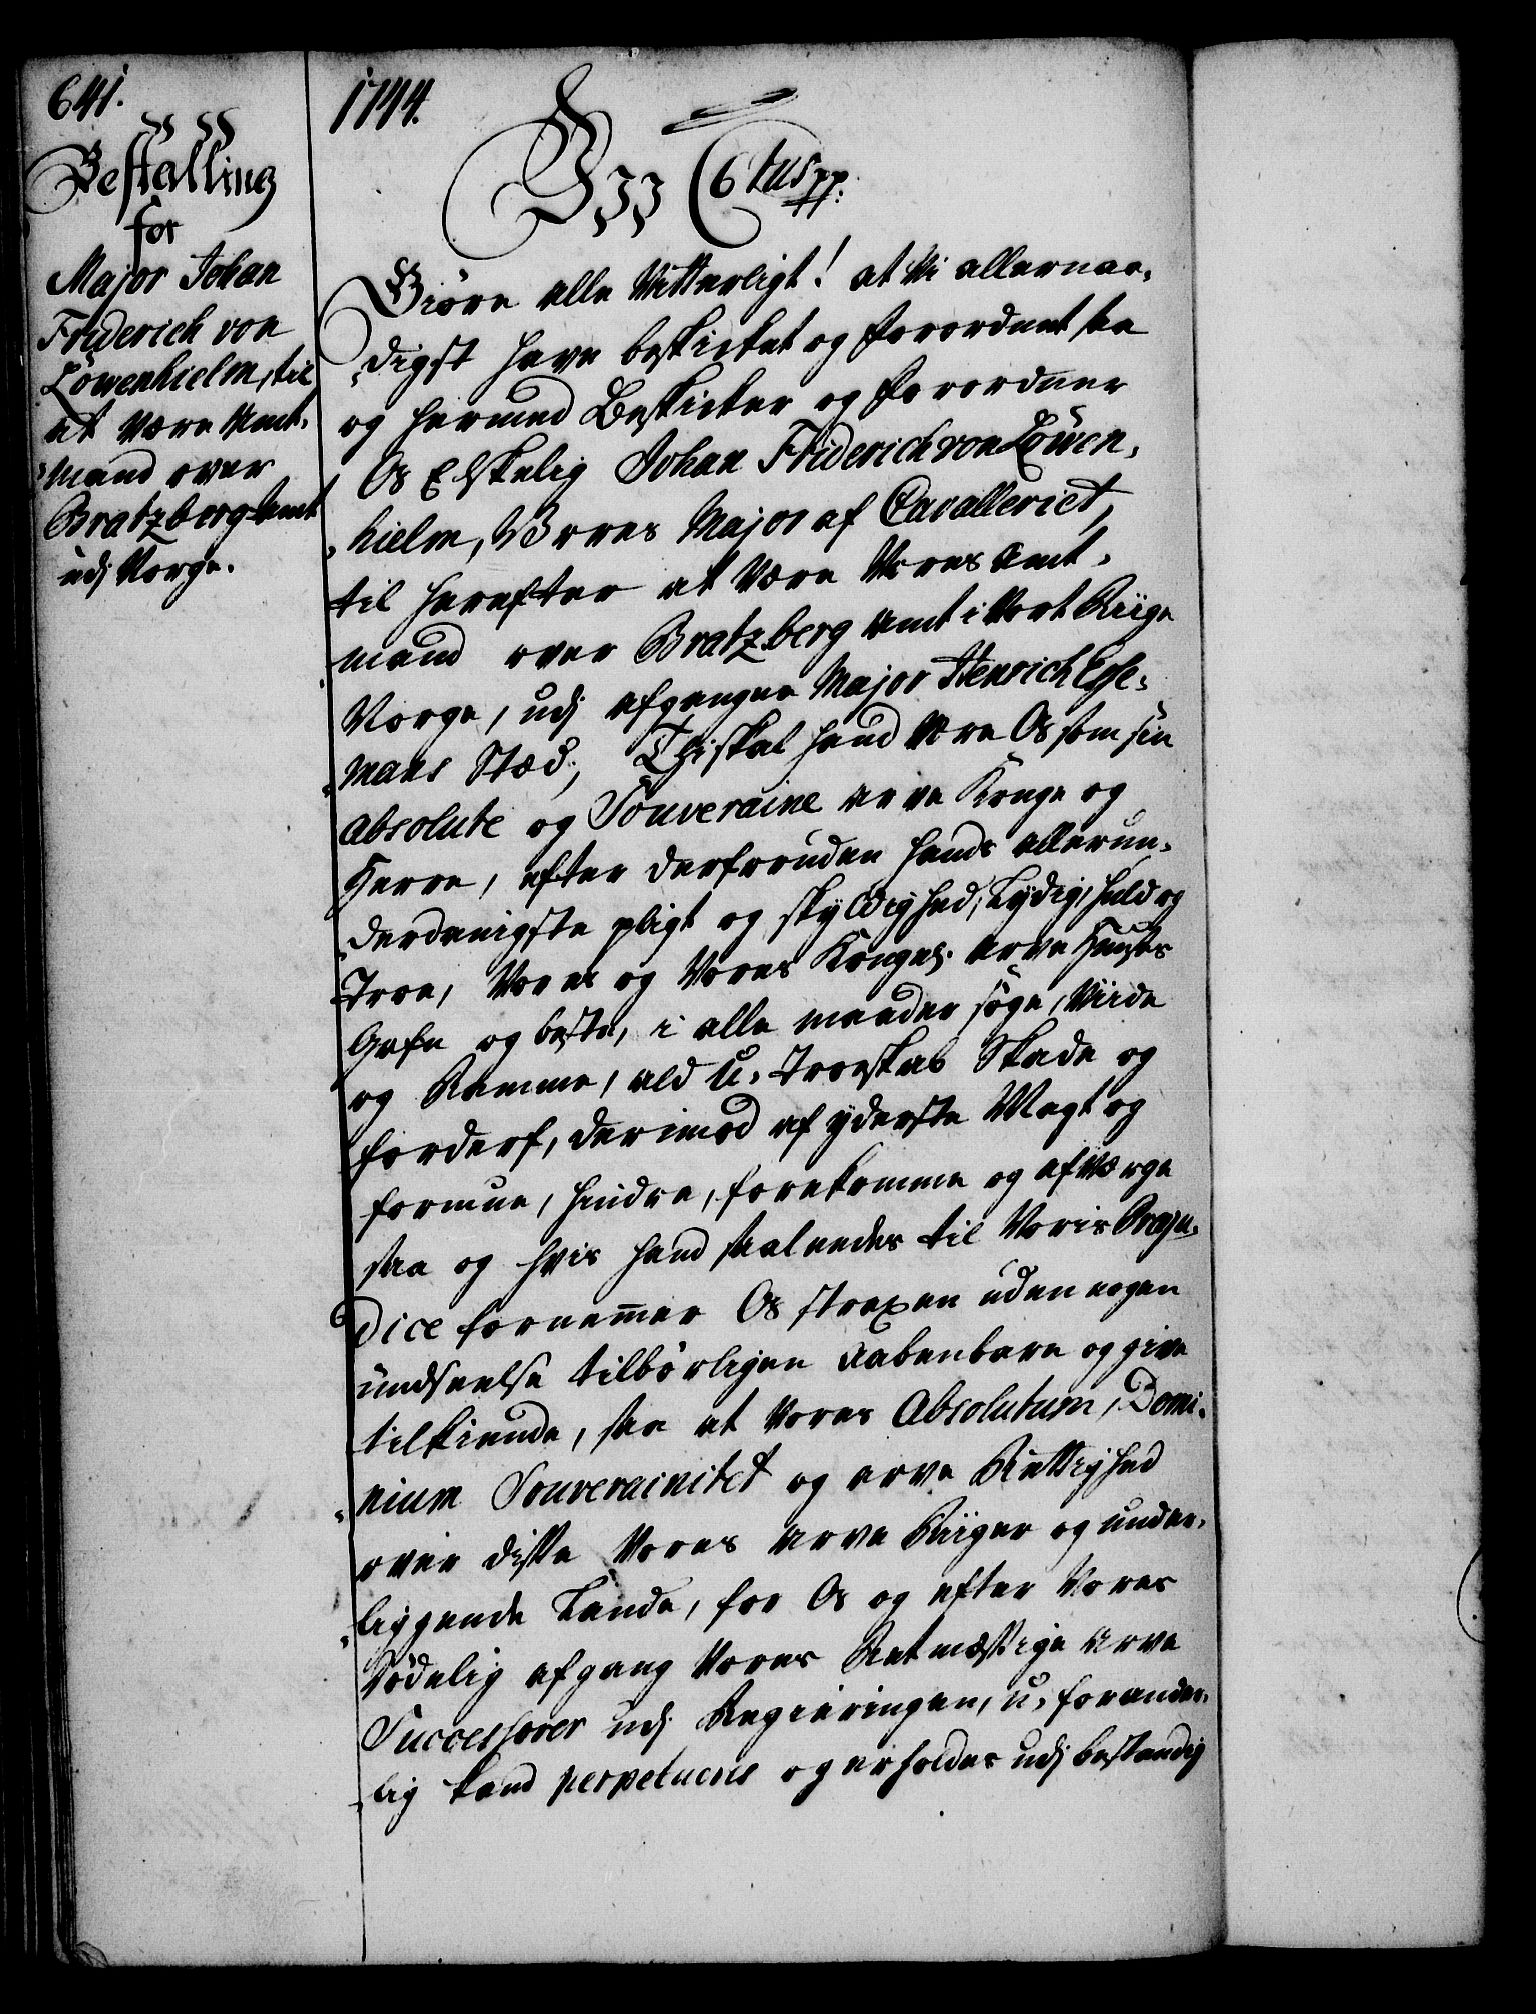 641.
Bestalling
for
Major Johan
Friderich von
Löwenhielm, til
at være Amt¬
mand over
Bratzberg Amt
udj Norge.
1744.
C 6tus pp.
Giöre alle Vitterligt! at Vi allernaa¬
digst have beskicket og forordnet saa
og hermed Beskicker og forordner
Os Elskelig Johan Friderich von Löwen¬
hielm, Vores Major af Cavalleriet,
til herefter at være Vores Amt¬
mand over Bratzberg Amt i Vort Riige
Norge, udj afgangne Major Henrich Esse¬
mans Stæd; Thi skal hand være Os som sin
absolute og Souveraine Arve Konge og
Herre, efter derforuden hands allerun¬
derdanigste pligt og skyldighed, Lydig, huld og
Troe, Vores og Vores Kongel. Arve Huuses
Gafn og beste, i alle maader söge, Viide
og Ramme, ald U-Troeskab Skade og
forderf, derimod af yderste Magt og
formue, hindre, forekomme og afværge
saa og hvis hand saaledes til Voris Præju¬
dice fornemmer Os straxen uden nogen
undseelse tilbörligen aabenbare og give
tilkiende, saa at Vores Absolutum, Domi¬
nium Souverainitet og Arve Rettighed
over disse Vores Arve Riiger og under¬
liggende Lande, for Os og efter Vores
Dödelig afgang Vores Retmæssige Arve
Successorer udj Regieringen, u-forander¬
lig kand perpetueris og erholdes udj bestandig